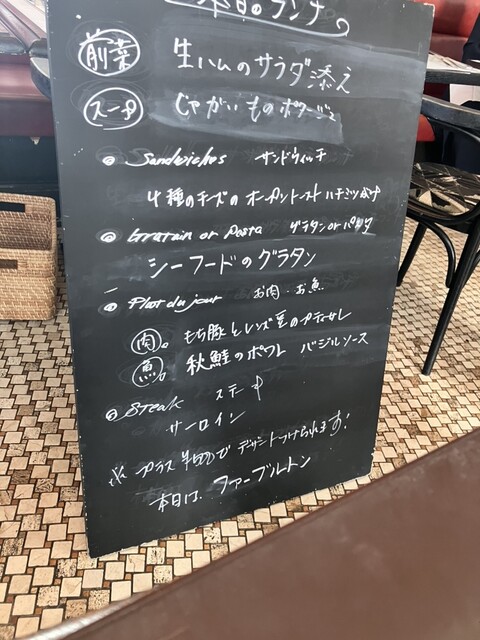 本日のランチ
前菜 生ハムのサラダ添え
スープ じゃがいものポタージュ
Sandwiches サンドウィッチ
4種のチーズのオープントースト ハチミツ
Gratain or Pasta グラタン or パスタ
シーフードのグラタン
Plat du jour お肉・お魚
肉。 もち豚とレンズ豆のプティサレ
魚。 秋鮭のポワレ バジルソース
Steak ステーキ
サーロイン
※ プラス デザートつけられます。
本日は、ファーブルトン